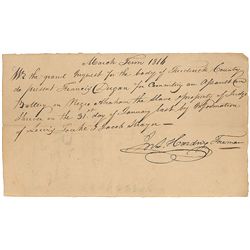 March Term 1816
We the grand Inquest for the body of Frederick County
do present Francis Dugan for Committing an Assault &
Battery on Negro Abraham the slave property of Judge
Shriver on the 31st day of January last by information
of Lewis & Jacob